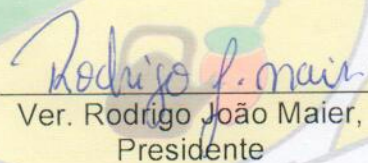 Rodrigo J. Maier
Ver. Rodrigo João Maier,
Presidente